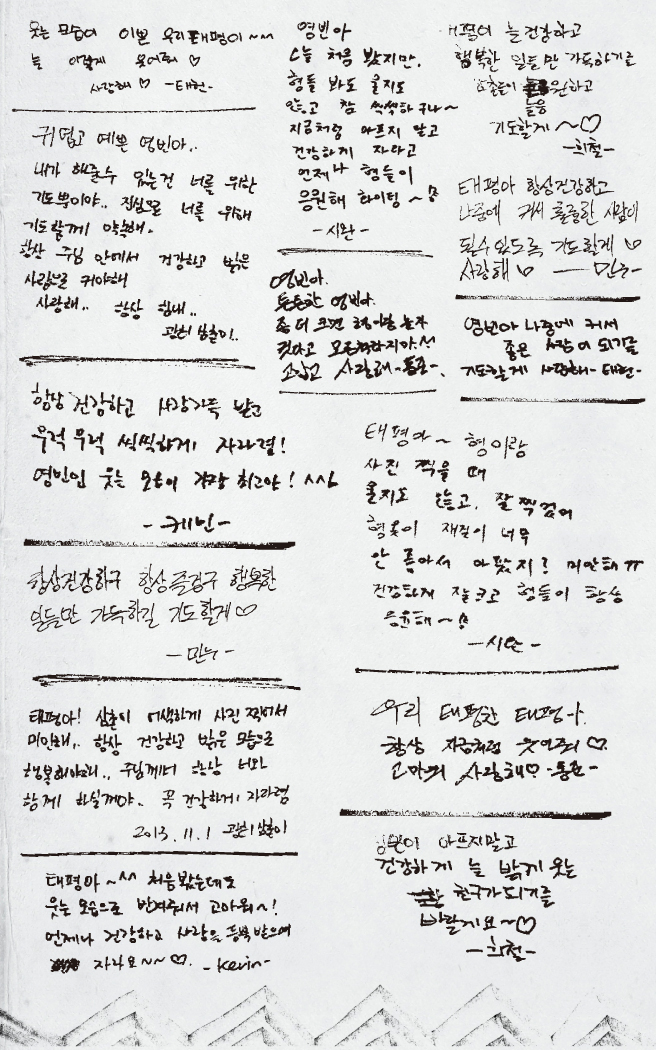 웃는 모습이 이쁜 우리 태평이 ~~
늘 이렇게 웃어줘 ♡
사랑해 ♡ -태헌-
귀엽고 예쁜 영빈아..
내가 해줄수 있는건 너를 위한
기도뿐이야.. 진심으로 너를 위해
기도할게 약속해.
항상 주님 안에서 건강하고 밝은
사람으로 커야해
사랑해.. 항상 힘내..
광희 삼촌이..
항상 건강하고 사랑가득 받고
무럭 무럭 씩씩하게 자라렴!
영빈인 웃는 모습이 가장 최고야! ^^b
-케빈-
항상건강하구 항상즐겁구 행복한
일들만 가득하길 기도할게♡
-민우-
태평아! 삼촌이 어색하게 사진 찍어서
미안해.. 항상 건강하고 밝은 모습으로
행복해야해.. 주님께서 항상 너와
함께 하실꺼야.. 꼭 건강하게 자라렴
2013. 11. 1 광희 삼촌이
태평아 ~^^ 처음봤는데도
웃는 모습으로 반겨줘서 고마워~!
언제나 건강하고 사랑을 듬뿍 받으며
자라요~~ ♡. -kevin-
영빈아
오늘 처음 봤지만,
형들 봐도 울지도
않고 참 씩씩하구나~
지금처럼 아프지 말고
건강하게 자라고
언제나 형들이
응원해 화이팅 ~
-시완-
영빈아.
튼튼한 영빈아.
좀 더 크면 형아랑 놀자
컸다고 모른척하지마서
고맙고 사랑해 -동준-.
태평이 늘 건강하고
행복한 일들만 가득하기를
삼촌들이 응원하고
늘응
기도할게 ~♡
-희철-
태평아 항상건강하고
나중에 커서 훌륭한 사람이
될수있도록 기도할게 ♡
사랑해 ♡ — 민우 -
영빈아 나중에 커서
좋은 사람이 되기를
기도할게 사랑해 -태헌-
태평아~ 형이랑
사진 찍을 때
울지도 않고, 잘 찍었어
형옷이 재질이 너무
안 좋아서 아팠지? 미안해ㅠ
건강하게 잘크고 형들이 항상
응원해~
-시완-
우리 태평한 태평아.
항상 지금처럼 웃어줘 ♡.
고마워 사랑해♡ -동준-
영빈이 아프지말고
건강하게 늘 밝게 웃는
친구가되기를
바랄게요~♡
-희철-